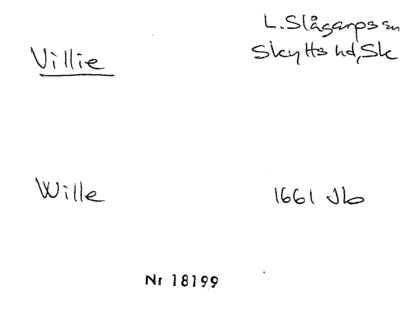 L. Slågarps sn
Villie
Skytts hd, Sk
Wille
1661 Jb
Nr 18199